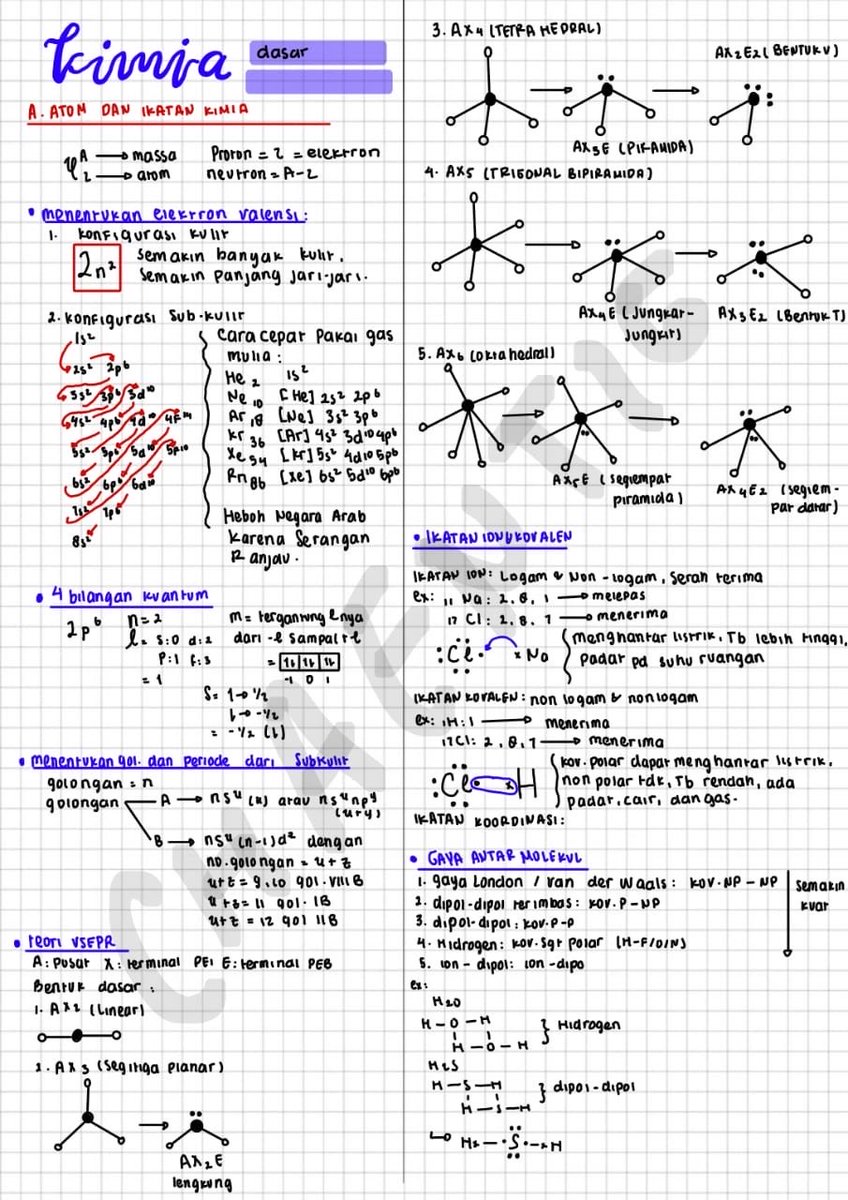 kimia dasar
A. ATOM DAN IKATAN KIMIA
A → massa Proton = Z = elektron
Z → atom neutron = A-Z
• menentukan elektron valensi:
1. Konfigurasi kulit
2n² semakin banyak kulit,
semakin panjang jari-jari.
2. Konfigurasi Sub-kulit
1s²
2s² 2p⁶
3s² 3p⁶ 3d¹⁰
4s² 4p⁶ 4d¹⁰ 4f¹⁴
5s² 5p⁶ 5d¹⁰ 5f¹⁰
6s² 6p⁶ 6d¹⁰
7s² 7p⁶
8s²
Cara cepat Pakai gas
mulia:
He 2 1s²
Ne 10 [He] 2s² 2p⁶
Ar 18 [Ne] 3s² 3p⁶
Kr 36 [Ar] 4s² 3d¹⁰ 4p⁶
Xe 54 [Kr] 5s² 4d¹⁰ 5p⁶
Rn 86 [Xe] 6s² 5d¹⁰ 6p⁶
Heboh Negara Arab
Karena Serangan
Ranjau.
• 4 bilangan kuantum
2p⁶ n=2
l = s:0 d:2
p:1 f:3
= 1
m = tergantung l nya
dari -l sampai +l
= -1 0 1
s = 1 → ½
↓ → -½
= -½ (↓)
• menentukan gol. dan periode dari Subkulit
golongan = n
golongan A → nsᵘ (u) atau nsᵘ npʸ
(u+y)
B → nsᵘ (n-1)dᶻ dengan
no.golongan = u+z
u+z = 9,10 gol. VIIIB
u+z = 11 gol. IB
u+z = 12 gol IIB
• teori VSEPR
A: Pusat X: terminal PEI E: terminal PEB
Bentuk dasar:
1. AX₂ (Linear)
2. AX₃ (segitiga planar)
AX₂E
lengkung
3. AX₄ (TETRA HEDRAL)
AX₂E₂ (BENTUK V)
AX₃E (PIRAMIDA)
4. AX₅ (TRIGONAL BIPIRAMIDA)
AX₄E (Jungkat-
Jungkit)
AX₃E₂ (Bentuk T)
5. AX₆ (oktahedral)
AX₅E (segiempat
piramida)
AX₄E₂ (segiem-
pat datar)
• IKATAN ION & KOVALEN
IKATAN ION: Logam & Non-logam, Serah terima
ex: 11 Na: 2, 8, 1 → melepas
17 Cl: 2, 8, 7 → menerima
Cl × Na
menghantar listrik, Tb lebih tinggi,
padat pd suhu ruangan
IKATAN KOVALEN: non logam & nonlogam
ex: 1H: 1 → menerima
17Cl: 2, 8, 7 → menerima
Cl × H
kov. polar dapat menghantar listrik,
non polar tdk, Tb rendah, ada
padat, cair, dan gas.
IKATAN KOORDINASI:
• GAYA ANTAR MOLEKUL
1. gaya London / van der Waals: KOV. NP - NP
2. dipol-dipol terimbas: KOV. P - NP
3. dipol-dipol: KOV. P-P
4. Hidrogen: kov. sgt polar (H-F/O/N)
5. ion - dipol: ion - dipo
Semakin
kuat
ex:
H₂O
H - O - H
H - O - H
} Hidrogen
H₂S
H - S - H
H - S - H
} dipol-dipol
↳ H× - S - ×H
CHAENTIS